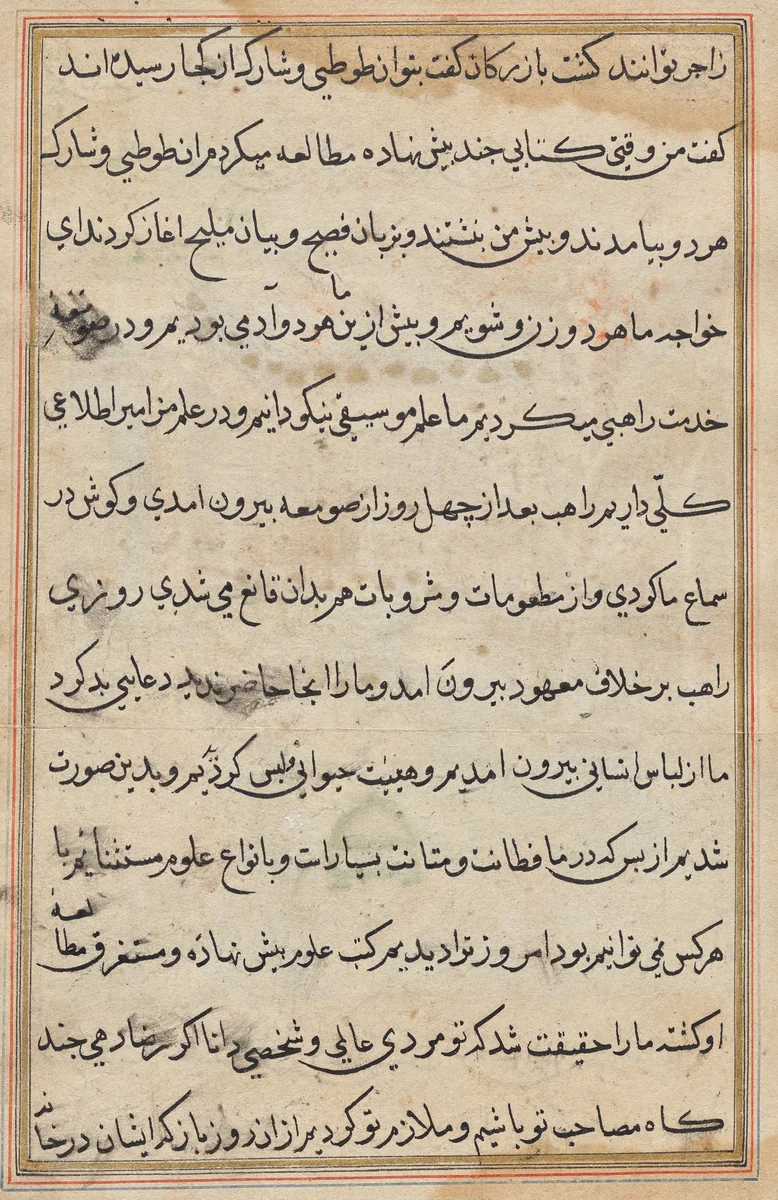 را جر توانند كشت بازركان كفت بتوان طوطيي و شارك از كجا رسيده اند
كفت من وقتى كتابي جند بيش نهاده مطالعه ميكردم ان طوطيي و شارك
هر دو بيامدند و بيش من بنشتند و بزبان فصيح و بيان مليح اغاز كردند اي
خواجه ما هر دو زن و شويم و بيش ازين ما هر دو آدمي بوديم و در صومعه
خدمت راهبي ميكرديم ما علم موسيقى نيكو دانيم و در علم مزامير اطلاعي
كلّي داريم راهب بعد از چهل روز از صومعه بيرون امدي و كوش در
سماع ما كردي و از مطعومات و مشروبات هم بدان قانع مي شدي روزي
راهب بر خلاف معهود بيرون امد و ما را انجا حاضر نديد دعايي بد كرد
ما از لباس انساني بيرون امديم و هييت حيواني ولبس كرديم و بدين صورت
شديم از بس كه در ما فطانت و متانت بسيار است و بانواع علوم مستثنائيم با
هر كس نمي توانيم بود امروز ترا ديديم كتب علوم بيش نهاده و مستغرق مطالعه
او كشته ما را حقيقت شد كه تو مردي عالمي و شخصي دانا اكر رضا دهي جند
كاه مصاحب تو باشيم و ملازم تو كرديم از ان روز باز كه ايشان در خانه